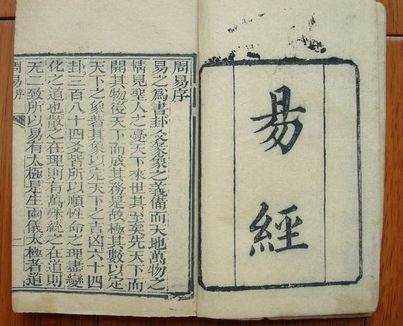 易經
周易序
易之爲書卦爻彖象之義備而天地萬物之
情見聖人之憂天下來世其至矣先天下而
開其物後天下而成其務是故極其數以定
天下之象著其象以定天下之吉凶六十四
卦三百八十四爻皆所以順性命之理盡變
化之道也散之在理則有萬殊統之在道則
无二致所以易有太極是生兩儀太極者道
周易序